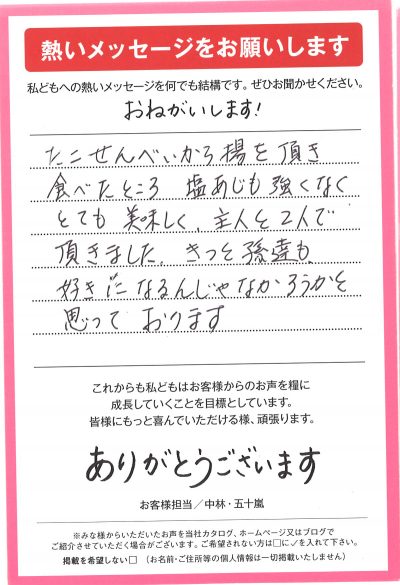 熱いメッセージをお願いします
私どもへの熱いメッセージを何でも結構です。ぜひお聞かせください。
おねがいします!
たこせんべいから揚を頂き
食べたところ 塩あじも強くなく
とても 美味しく、主人と2人で
頂きました。きっと孫達も
好きになるんじゃなかろうかと
思って おります
これからも私どもはお客様からのお声を糧に
成長していくことを目標としています。
皆様にもっと喜んでいただける様、頑張ります。
ありがとうございます
お客様担当／中林・五十嵐
※みな様からいただいたお声を当社カタログ、ホームページ又はブログで
ご紹介させていただく場合がございます。ご希望されない方は□に✓を入れて下さい。
掲載を希望しない□ (お名前・ご住所等の個人情報は一切掲載いたしません)